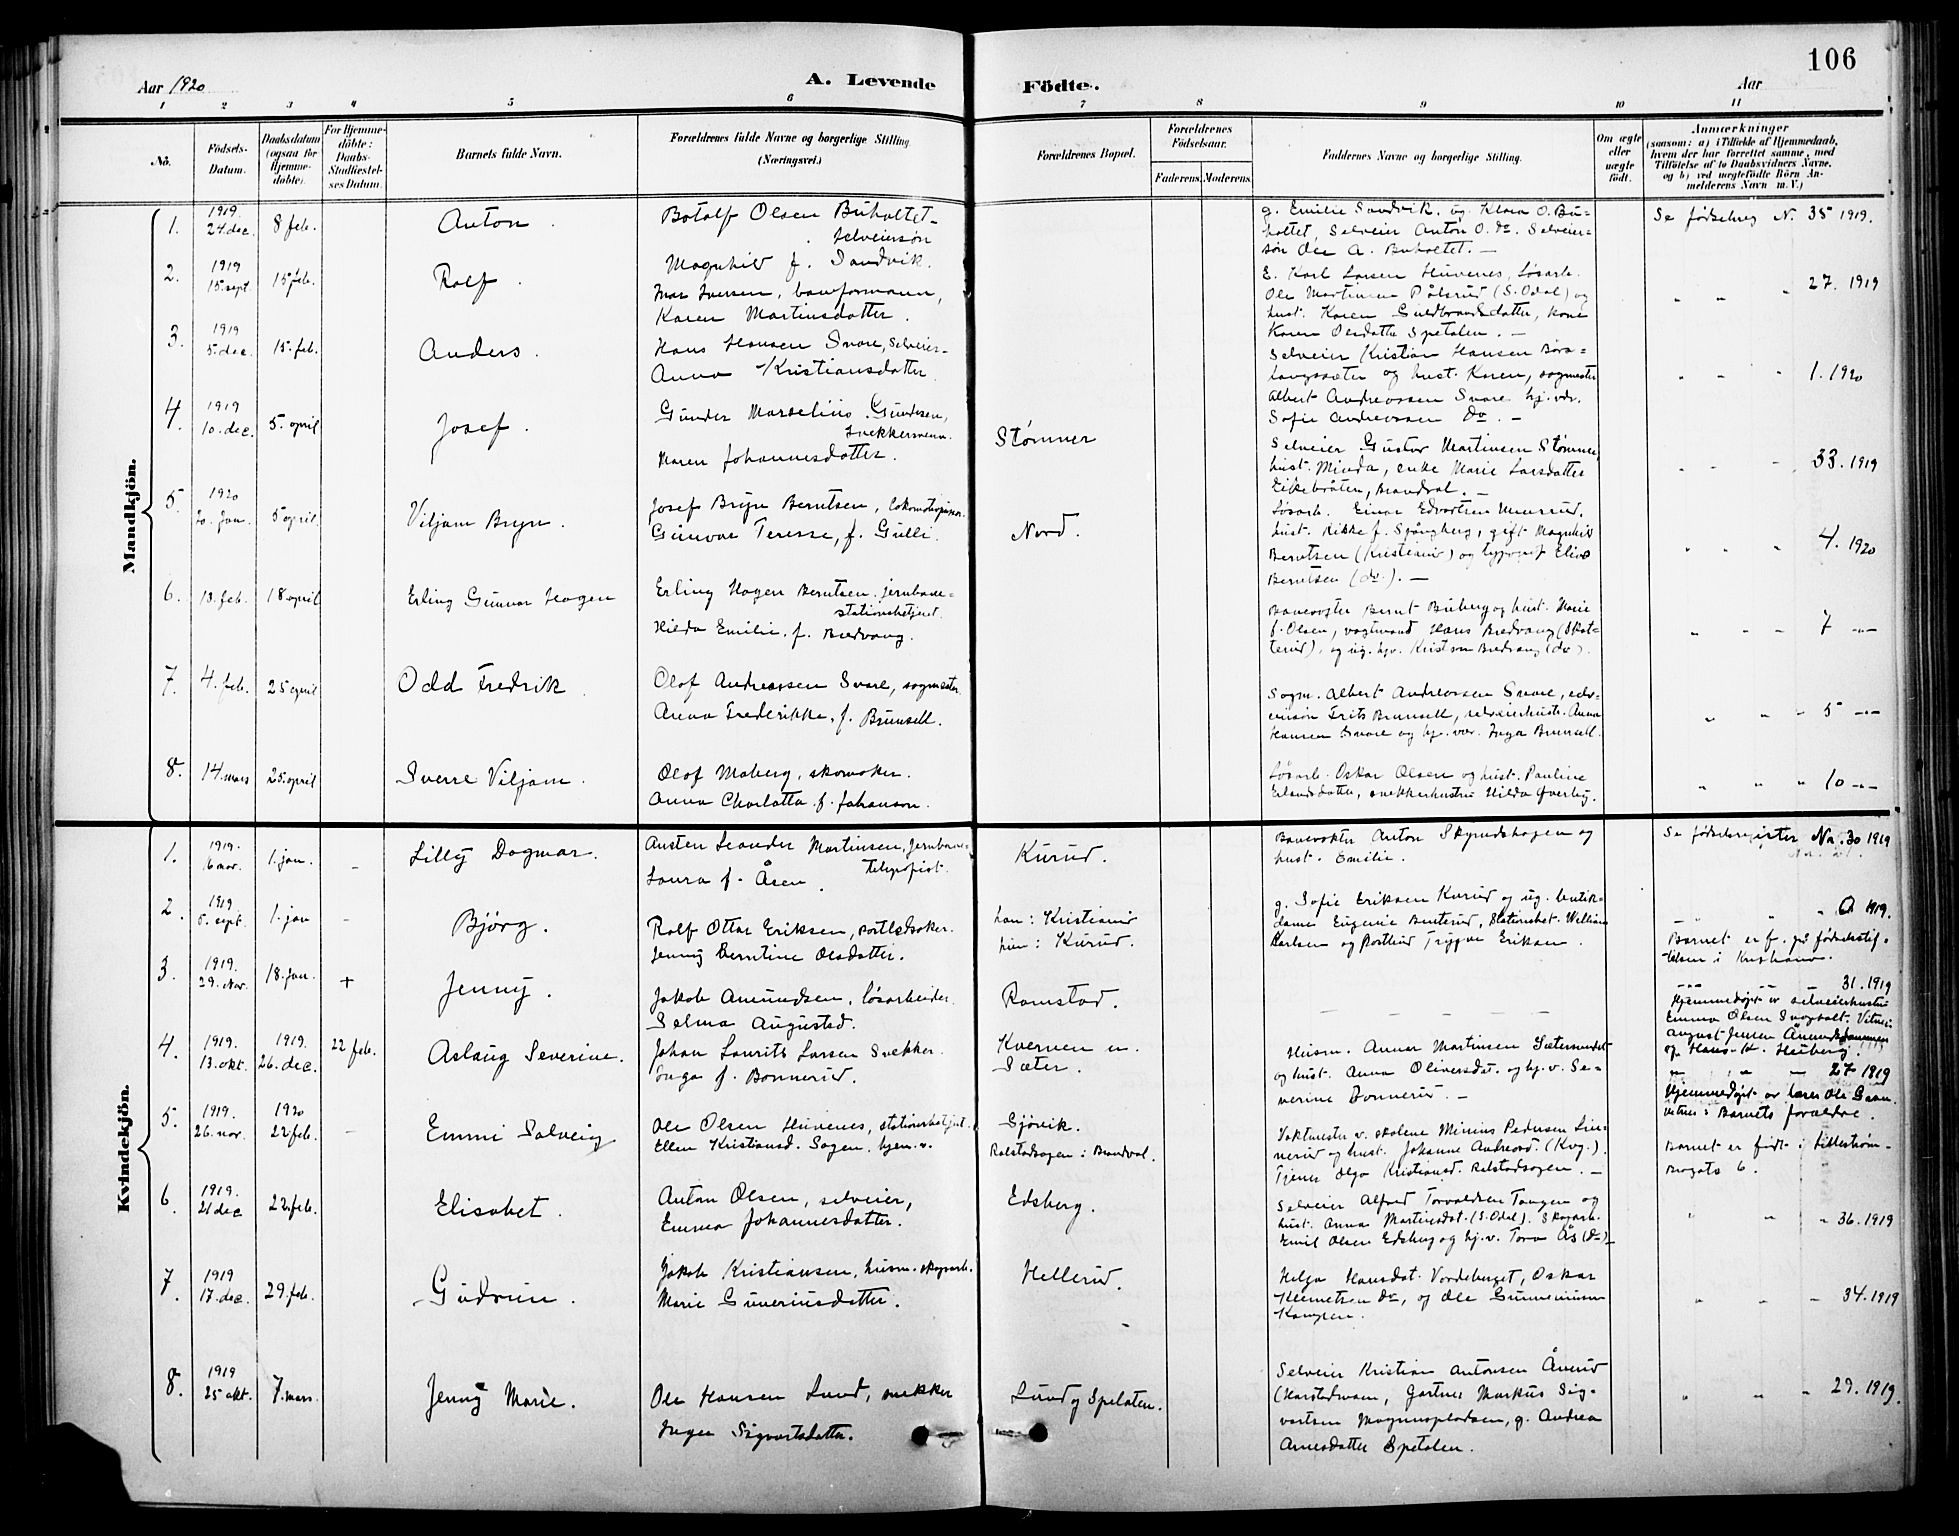 106
Aar 1920
A. Levende
Födte.
Aar
1 2 3 4 5 6 7 8 9 10 11
Nô.
Födsels-
Datum.
Daabsdatum
(ogsaa for
Hjemme-
döbte).
For Hjemme-
döbte:
Daabs-
Stadfæstel-
ses Datum.
Barnets fulde Navn.
Forældrenes fulde Navne og borgerlige Stilling.
(Næringsvei.)
Forældrenes Bopæl.
Forældrenes
Födselsaar.
Faderens. Moderens.
Faddernes Navne og borgerlige Stilling.
Om ægte
eller
uægte
födt.
Anmærkninger
(saasom: a) i Tilfælde af Hjemmedaab,
hvem der har forrettet samme, med
Tilföielse af to Daabsvidners Navne,
og b) ved uægtefödte Börn An-
melderens Navn m. V.)
Mandkjön.
1. 1919 24. dec. 8 feb. Anton
Botolf Olsen Buholtet
selveiersön
Magnhild f. Sandvik.
g. Emilie Sandvik, ug. Klara O. Bu-
holtet, Selveier Anton O. do. Selveier-
søn Ole A. Buholtet. —
Se fødselreg N. 35 1919.
2. 1919 15. sept. 15 feb. Rolf
Ivar Iversen, baneformann,
Karen Martinsdatter.
E. Karl Larsen Huvenes, Løsarb.
Ole Martinsen Pålsrud (S. Odal) og
hust. Karen Guldbrandsdatter, kone
Karen Olsdatter Spetalen. —
" " " 27. 1919
3. 1919 5. dec. 15. feb. Anders.
Hans Hansen Svare, Selveier
Anna Kristiansdatter
Selveier Kristian Hansen Børa-
langsæter og hust. Karen, sagmester
Albert Andreassen Svare hj. vær.
Sofie Andreassen do. —
" " " 1. 1920
4. 1919 10. dec. 5. april Josef.
Gunder Marselius Gundersen,
snekkersvenn.
Maren Johannesdatter.
Stømner
Selveier Gustav Martinsen Stømner,
hust. Minda, enke Marie Larsdatter
Eikebråten, Brandval. —
" " " 33. 1919
5. 1920 20. jan. 5 april Viljam Bryn.
Josef Bryn Berntsen, lokomotivpusser.
Gunvor Terese, f. Gulli.
Nord.
Løsarb. Einar Edvartsen
hust. Rikke f. Spångberg, gift Magnhild
Berntsen (Kristiania) og typograf
Berntsen (do.). —
" " " 4. 1920
6. 13. feb. 18 april Erling Gunnar Hagen
Erling Hagen Berntsen. jernbane-
stationsbetjent.
Hilda Emilie, f. Bredvang.
Banevogter Bernt Buberg og hust. Marie
f. Olsen, vogtmand Hans Bredvang (Skot-
terud), og ug. hjv. Kristine Bredvang (do).
" " " 7 -"-
7. 4. feb. 25 april Odd Fredrik
Olof Andreassen Svare, sagmester.
Anna Frederikke, f. Brunsell.
Sagm. Albert Andreassen Svare,
Frits Brunsell, selveierhustr. Anna
Hansen Svare og hj. vær. Inga Brunsell.
" " " 5 -"-
8. 14. mars 25. april Sverre Viljam.
Olof Moberg, skomaker.
Anna Charlotta f. Johanson.
Løsarb. Oskar Olsen og hust. Pauline
Erlandsdatter, snekkerhustru Hilda Øverby.
" " " 10 -"-
Kvindekjön.
1. 1919. 6 nov. 1. jan. – Lilly Dagmar.
Austen Leander Martinsen, jernbane-
telegrafist.
Laura f. Åsen.
Kurud.
Banevokter Anton Skyrudshagen og
hust. Emilie.
Se fødselsregister No. 30 1919
2. 1919 5. sept. 1. jan – Bjørg.
Rolf Ottar Eriksen, portledsaker.
Jenny Berntine Olsdatter.
han: Kristiania
hun: Kurud.
g. Sofie Eriksen Kurud og ug. butik-
dame Eugenie Benterud, Stationsbet. William
Karlsen og Postbud Trygve Eriksen.
" " " A 1919.
Barnet er f. på fødselsstif-
telsen i Kristiania.
3. 1919. 29. Nov. 18. jan. + Jenny.
Jakob Amundsen, løsarbeider.
Selma Augustad.
Ramstad.
– – – –
" " " 31. 1919
Hjemmedøpt av selveierhustru
Emma Olsen Vitner:
August Jensen
og Hans K. Heiberg.
4. 1919. 13. okt. 1919. 26. dec. 22 feb. Aslaug Severine.
Johan Laurits Larsen Snekker.
Inga f. Bonnerud.
Kvernen u.
Sæter.
Husm. Anner Martinsen Sætersmoet
og hust. Anna Oliversdat. og hj. v. Se-
verine Bonnerud. —
" " " 27 1919
Hjemmedøpt av lærer Ole Gran.
vitner: Barnets forældre.
5. 1919. 26. nov. 1920 22 feb. – Emmi Solveig
Ole Olsen Huvenes, stationsbetjent.
Ellen Kristiansd. Sagen, hjem. v.
Gjøvik.
Rolstadsagen i Brandval.
Vaktmester v. skolene Minius Pedersen Lin-
nerud og hust. Johanne Andreasd. (Kvg.).
Tjener Olga Kristiansd. Rolstadsagen. —
Barnet er født i Lillestrøm
6.
6. 1919. 21 dec 22. feb. Elisabet.
Anton Olsen, selveier,
Emma Johannesdatter.
Edsberg.
Selveier Alfred Torvaldsen Tangen og
hust. Anna Martinsdat. (S. Odal). Skogarb.
Emil Olsen Edsberg og hj. v. Tora Ås (do) —
" " " 36. 1919
7. 1919 17. dec. 29. feb. Gudrun.
Jakob Kristiansen, husm. skogsarb.
Marie Guneriusdatter.
Hellerud.
Helga Hansdat. Vordeberget, Oskar
Klemetsen do, og Ole Gunneriussen
Kampen.
" " " 34. 1919
8. 1919 25 okt. 7. mars. Jenny Marie.
Ole Hansen Lund, snekker
Inga Sigvartsdatter.
Lund og Spetalen.
Selveier Kristian Antonsen Ånerud
(Harstadmoen, Gartner Markus Sig-
vartsen Magnorpladsen, g. Andrea
Arnesdatter Spetalen.
" " " 29. 1919.